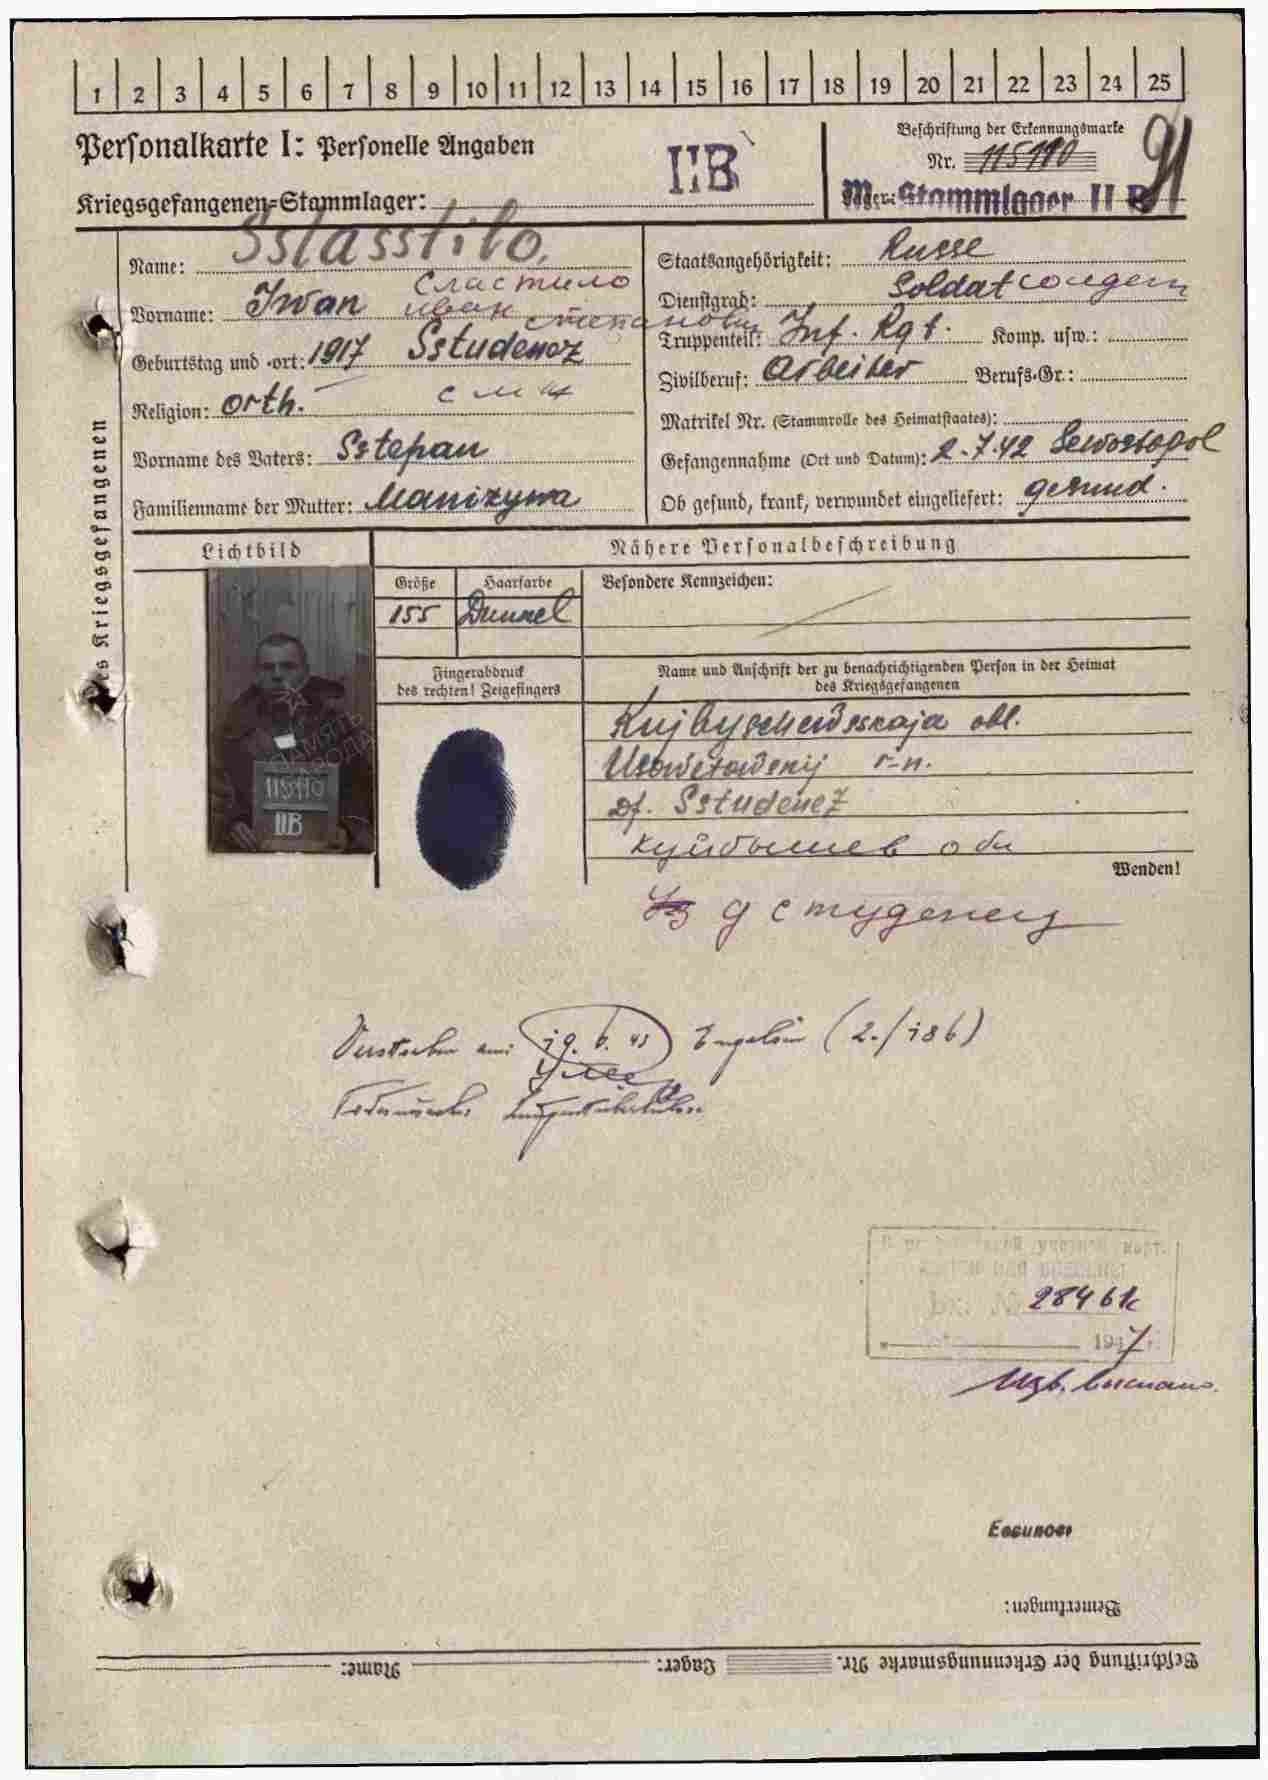 1 2 3 4 5 6 7 8 9 10 11 12 13 14 15 16 17 18 19 20 21 22 23 24 25
Personalkarte I: Personelle Angaben
Kriegsgefangenen=Stammlager: IIB
Beschriftung der Erkennungsmarke
Nr. 115110
Stammlager II B
91
Name: Sslasstilo.
Сластило
Vorname: Iwan Иван Степанович
Geburtstag und -ort: 1917 Sstudenez
Religion: orth.
Vorname des Vaters: Sstepan
Familienname der Mutter:
Staatsangehörigkeit: Russe
Dienstgrad: Soldat солдат
Truppenteil: Inf. Rgt. Komp. usw.:
Zivilberuf: Arbeiter Berufs-Gr.:
Matrikel Nr. (Stammrolle des Heimatstaates):
Gefangennahme (Ort und Datum): 2.7.42 Sewostopol
Ob gesund, krank, verwundet eingeliefert: gesund.
es Kriegsgefangenen
Lichtbild
Nähere Personalbeschreibung
Größe Haarfarbe Besondere Kennzeichen:
155 Dunkel
Fingerabdruck
des rechten! Zeigefingers
Name und Anschrift der zu benachrichtigenden Person in der Heimat
des Kriegsgefangenen
Kujbyschewsskaja obl.
r-n.
Df. Sstudenez
куйбышев обл
Wenden!
д студенец
ПАМЯТЬ
НАРОДА
115110
IIB
Verstorben am 19. 6. 43 (2./186)
28461к
1947 г.
Bemerkungen:
Beschriftung der Erkennungsmarke Nr. Lager: Name: